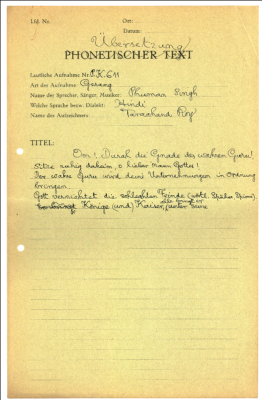 Lfd. Nr.
Ort:
Datum:
Übersetzung
PHONETISCHER TEXT
Lautliche Aufnahme Nr.: K. 611
Art der Aufnahme: Gesang
Name der Sprecher, Sänger, Musiker: Phuman Singh
Welche Sprache bezw. Dialekt: Hindi
Name des Aufzeichners: Tarachand Roy
TITEL:
Om! Durch die Gnade des wahren Guru!
Sitze ruhig daheim, o lieber Mann Gottes!
Der wahre Guru wird deine Unternehmungen in Ordnung
bringen.
Gott vernichtet die schlechten Feinde (wörtl.
Er bringt
Könige (und) Kaiser unter seine